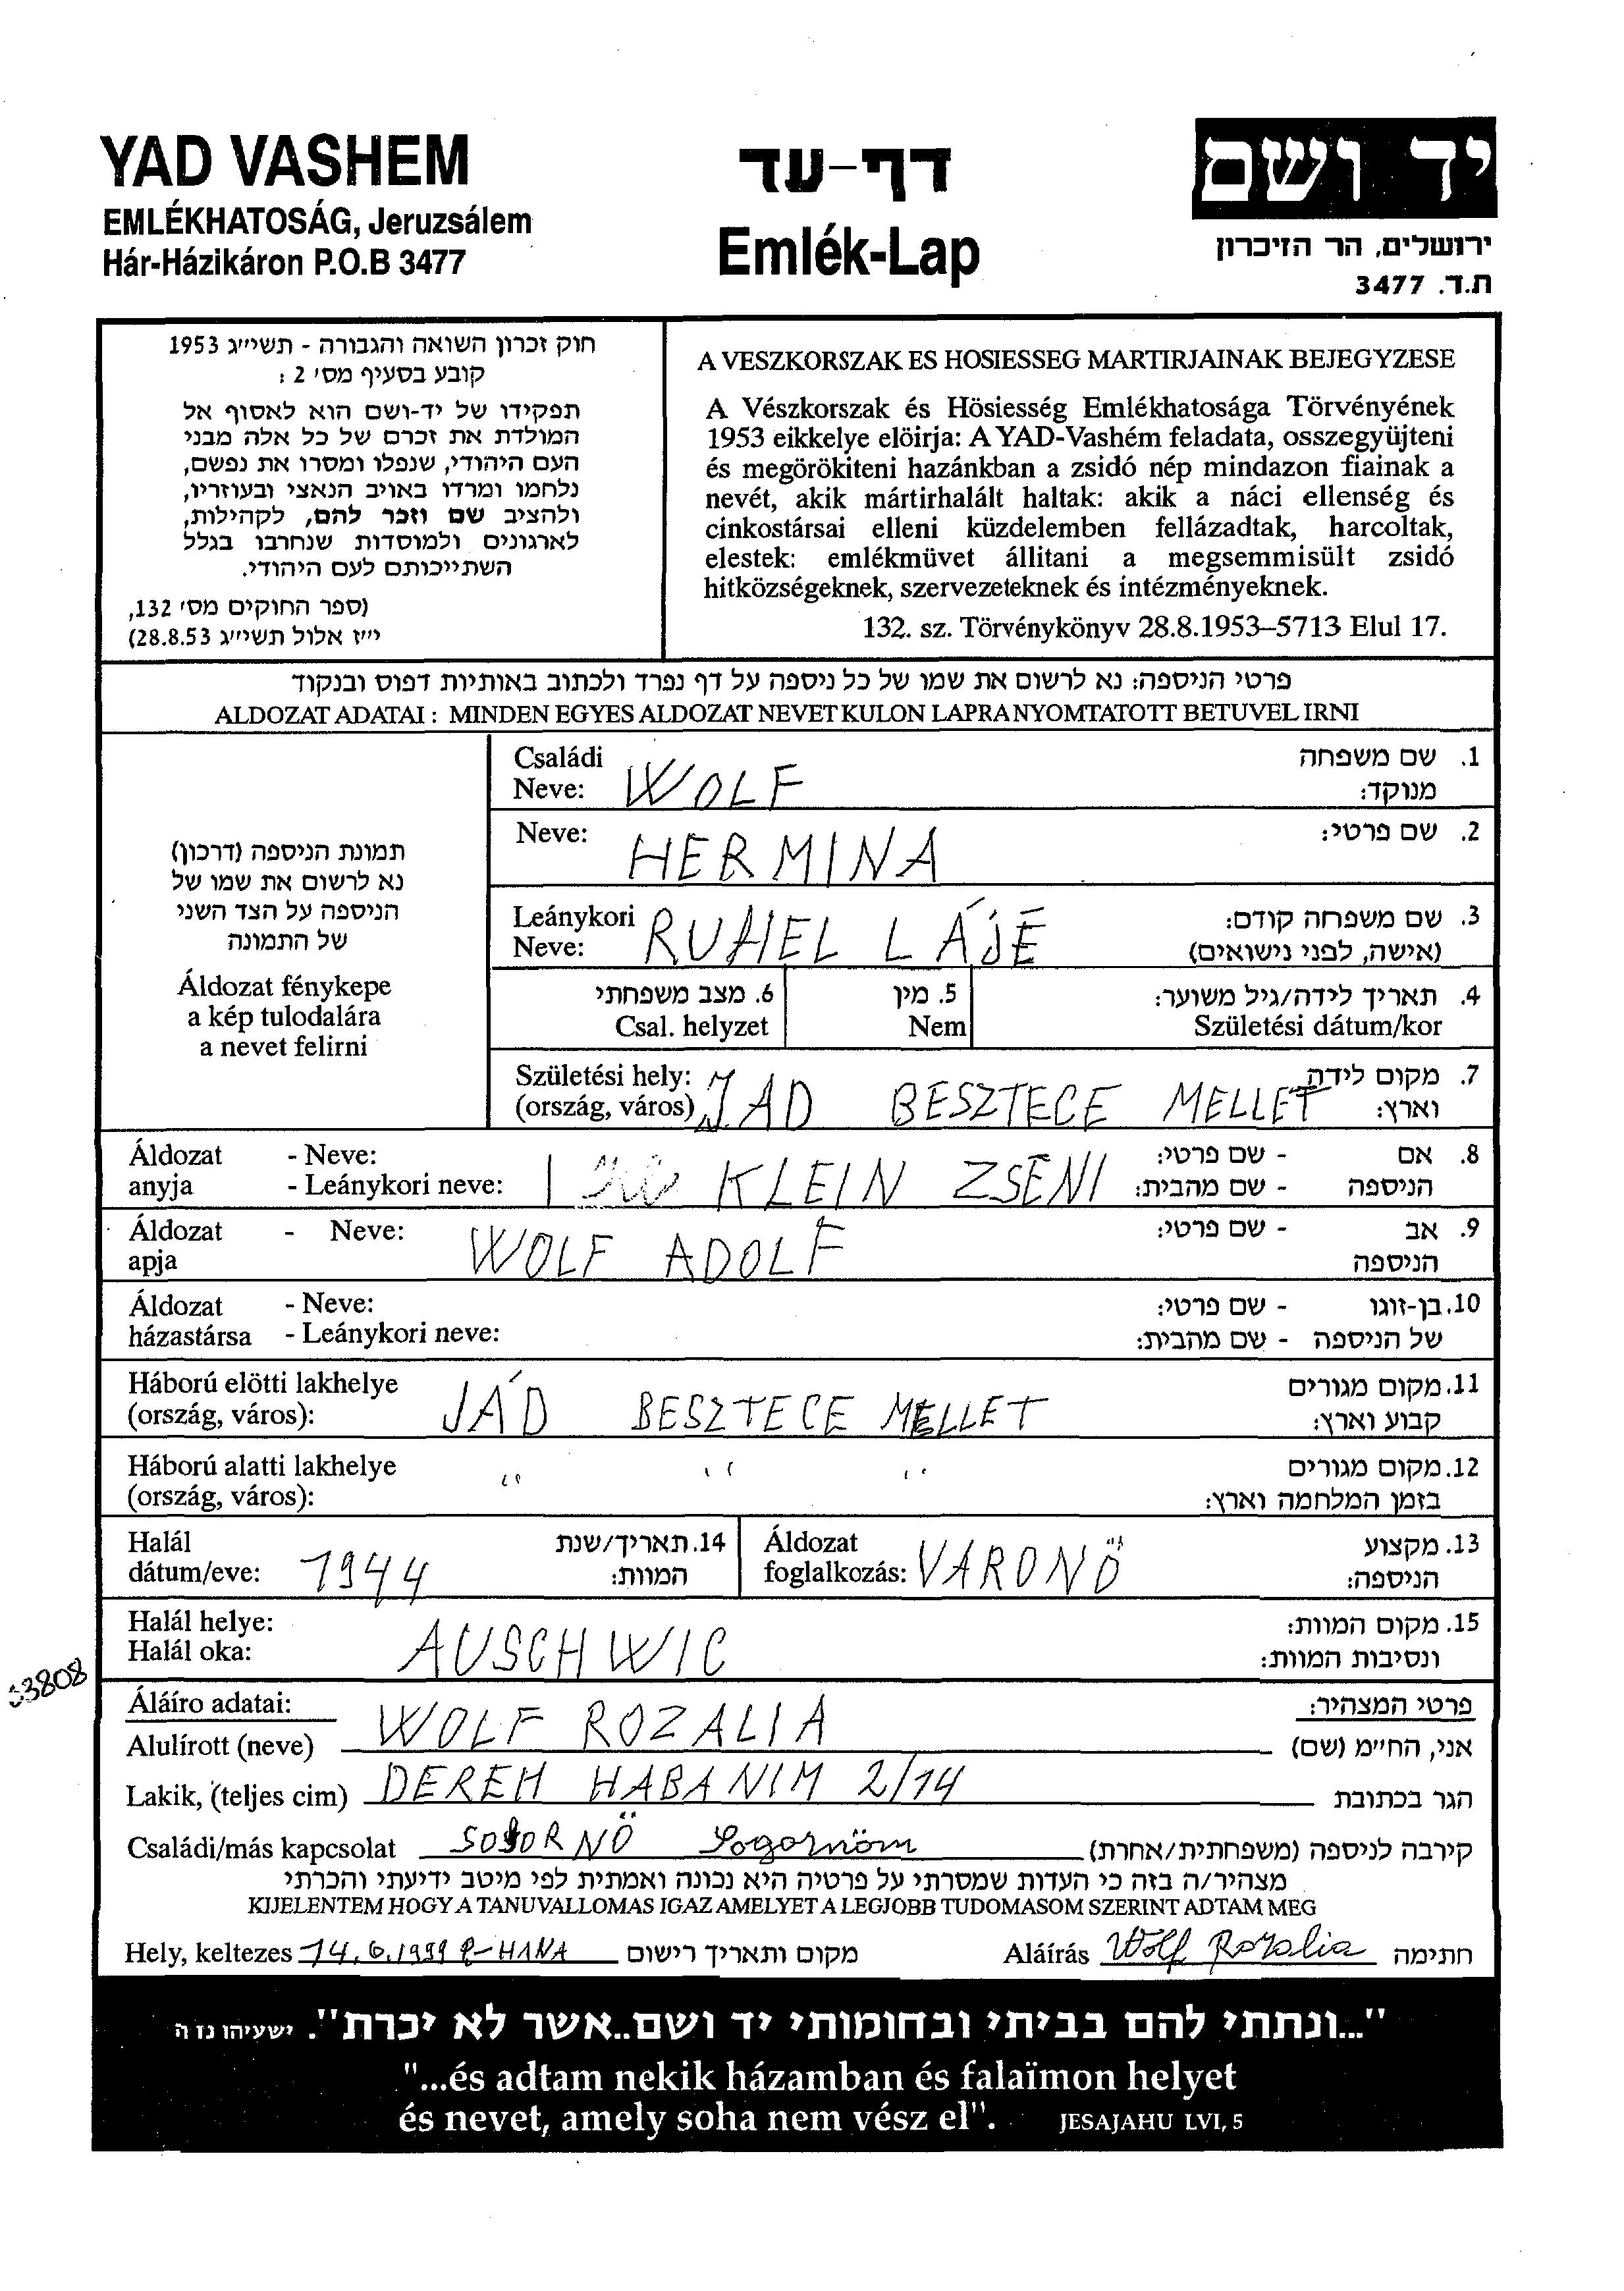 YAD VASHEM
EMLÉKHATOSÁG, Jeruzsálem
Hár-Házikáron P.O.B 3477
דף-עד
Emlék-Lap
יד ושם
ירושלים, הר הזיכרון
ת.ד. 3477
חוק זכרון השואה והגבורה - תשי״ג 1953
קובע בסעיף מס׳ 2 :
תפקידו של יד-ושם הוא לאסוף אל
המולדת את זכרם של כל אלה מבני
העם היהודי, שנפלו ומסרו את נפשם,
נלחמו ומרדו באויב הנאצי ובעוזריו,
ולהציב שם וזכר להם, לקהילות,
לארגונים ולמוסדות שנחרבו בגלל
השתייכותם לעם היהודי.
(ספר החוקים מס׳ 132,
י״ז אלול תשי״ג 28.8.53)
A VESZKORSZAK ES HOSIESSEG MARTIRJAINAK BEJEGYZESE
A Vészkorszak és Hösiesség Emlékhatosága Törvényének
1953 eikkelye elöirja: A YAD-Vashém feladata, osszegyüjteni
és megörökiteni hazánkban a zsidó nép mindazon fiainak a
nevét, akik mártirhalált haltak: akik a náci ellenség és
cinkostársai elleni küzdelemben fellázadtak, harcoltak,
elestek: emlékmüvet állitani a megsemmisült zsidó
hitközségeknek, szervezeteknek és intézményeknek.
132. sz. Törvénykönyv 28.8.1953–5713 Elul 17.
פרטי הניספה: נא לרשום את שמו של כל ניספה על דף נפרד ולכתוב באותיות דפוס ובנקוד
ALDOZAT ADATAI : MINDEN EGYES ALDOZAT NEVET KULON LAPRA NYOMTATOTT BETUVEL IRNI
תמונת הניספה (דרכון)
נא לרשום את שמו של
הניספה על הצד השני
של התמונה
Áldozat fénykepe
a kép tulodalára
a nevet felirni
Családi
Neve: WOLF
1. שם משפחה
מנוקד:
Neve: HERMINA
2. שם פרטי:
Leánykori
Neve: RUHEL LÁJÉ
3. שם משפחה קודם:
(אישה, לפני נישואים)
6. מצב משפחתי
Csal. helyzet
5. מין
Nem
4. תאריך לידה/גיל משוער:
Születési dátum/kor
Születési hely:
(ország, város) JAD BESZTECE MELLET
7. מקום לידה
וארץ:
Áldozat - Neve:
anyja - Leánykori neve: KLEIN ZSENI
8. אם - שם פרטי:
הניספה - שם מהבית:
Áldozat - Neve: WOLF ADOLF
apja
9. אב - שם פרטי:
הניספה
Áldozat - Neve:
házastársa - Leánykori neve:
10. בן-זוגו - שם פרטי:
של הניספה - שם מהבית:
Háború elötti lakhelye
(ország, város): JÁD BESZTECE MELLET
11. מקום מגורים
קבוע וארץ:
Háború alatti lakhelye " " "
(ország, város):
12. מקום מגורים
בזמן המלחמה וארץ:
Halál
dátum/eve: 1944
14. תאריך/שנת
המוות:
Áldozat
foglalkozás: VARONŐ
13. מקצוע
הניספה:
Halál helye:
Halál oka: AUSCHWIC
15. מקום המוות:
ונסיבות המוות:
3808
Áláíro adatai:
פרטי המצהיר:
Alulírott (neve) WOLF ROZALIA אני, הח״מ (שם)
Lakik, (teljes cim) DEREH HABANIM 2/14 הגר בכתובת
Családi/más kapcsolat SOGORNŐ Sogornöm קירבה לניספה (משפחתית/אחרת)
מצהיר/ה בזה כי העדות שמסרתי על פרטיה היא נכונה ואמתית לפי מיטב ידיעתי והכרתי
KIJELENTEM HOGY A TANUVALLOMAS IGAZ AMELYET A LEGJOBB TUDOMASOM SZERINT ADTAM MEG
Hely, keltezes 14.6.1999 R-HANA מקום ותאריך רישום
Aláírás Wolf Rozalia חתימה
"...ונתתי להם בביתי ובחומותי יד ושם..אשר לא יכרת". ישעיהו נו ה
"...és adtam nekik házamban és falaïmon helyet
és nevet, amely soha nem vész el". JESAJAHU LVI, 5